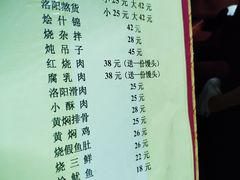 洛阳熬货 小25元 大42元
烩什锦 小25元 大42元
烧杂拌 42元
炖吊子 28元
红烧肉 38元（送一份馒头）
腐乳肉 38元（送一份馒头）
洛阳滑肉 25元
小酥肉 25元
黄焖排骨 28元
黄焖鸡 25元
烧假鱼肚 26元
烧三鲜 22元
烩鱿鱼 18元